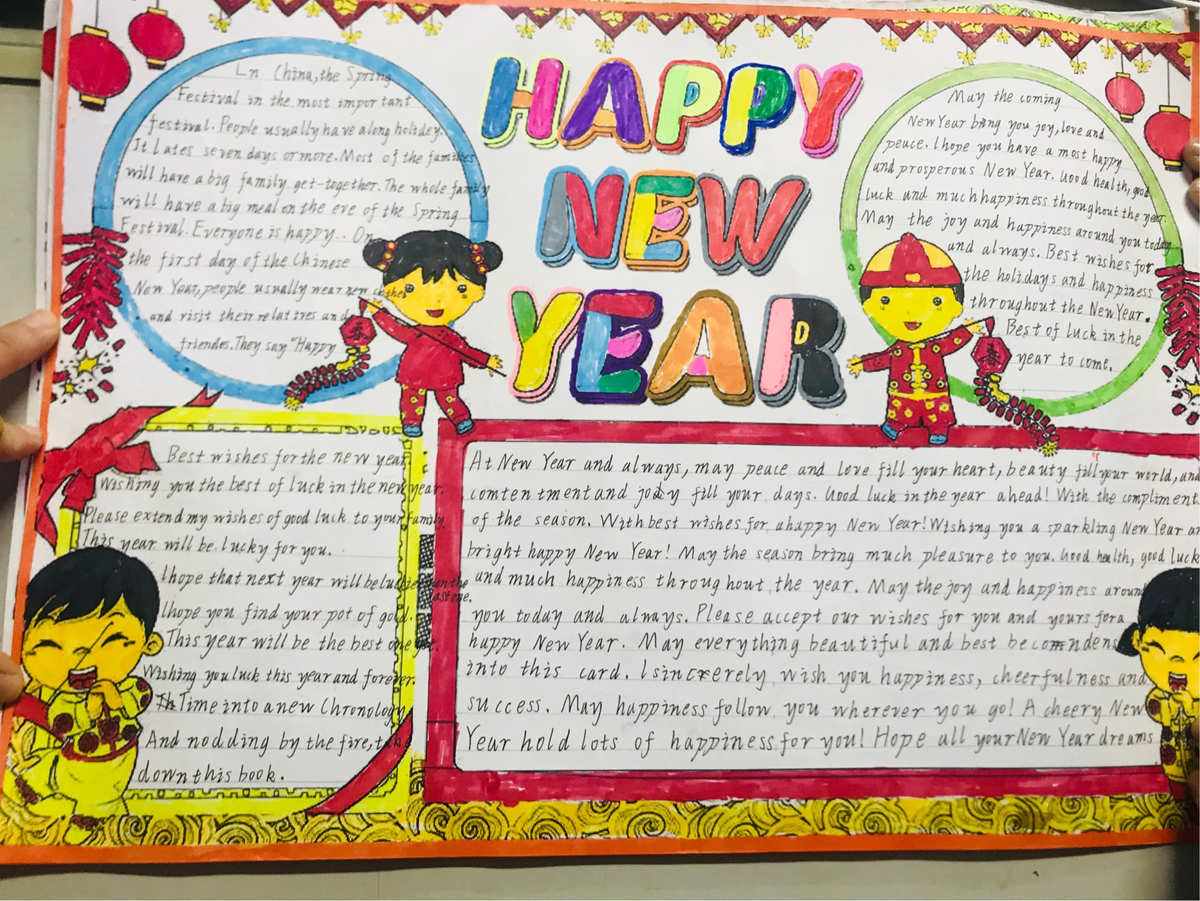 HAPPY
NEW
YEAR
Ln China, the Spring
Festival in the most important
festival. People usually have along holidey.
It Lates seven days or more. Most of the families
will have a big family get-together. The whole family
will have a big meal on the eve of the Spring
Festival. Everyone is happy.. On
the first day of the Chinese
New Year, people usually wear new clothes
and visit their relatires and
friendes. They say "Happy
May the coming
New Year bring you joy, love and
peace. I hope you have a most happy
and prosperous New Year. Good health, good
luck and much happiness throughout the year.
May the joy and happiness around you today
and always. Best wishes for
the holidays and happiness
throughout the New Year.
Best of luck in the
year to come.
春
春
Best wishes for the new year.
Wishing you the best of luck in the new year.
Please extend my wishes of good luck to your family.
This year will be lucky for you.
I hope that next year will be than the
last one.
I hope you find your pot of gold.
This year will be the best one yet.
Wishing you luck this year and forever.
Time into a new Chronology
And nodding by the fire,
down this book.
At New Year and always, may peace and love fill your heart, beauty fill your world, and
comtentment and fill your days. Good luck in the year ahead! With the compliment
of the season. With best wishes for a happy New Year! Wishing you a sparkling New Year a
bright happy New Year! May the season bring much pleasure to you. Good health, good luck
and much happiness throughout the year. May the joy and happiness around
you today and always. Please accept our wishes for you and yours for a
happy New Year. May everything beautiful and best be
into this card. I sincrerely wish you happiness, cheerfulness and
success. May happiness follow you wherever you go! A cheery New
Year hold lots of happiness for you! Hope all your New Year dreams